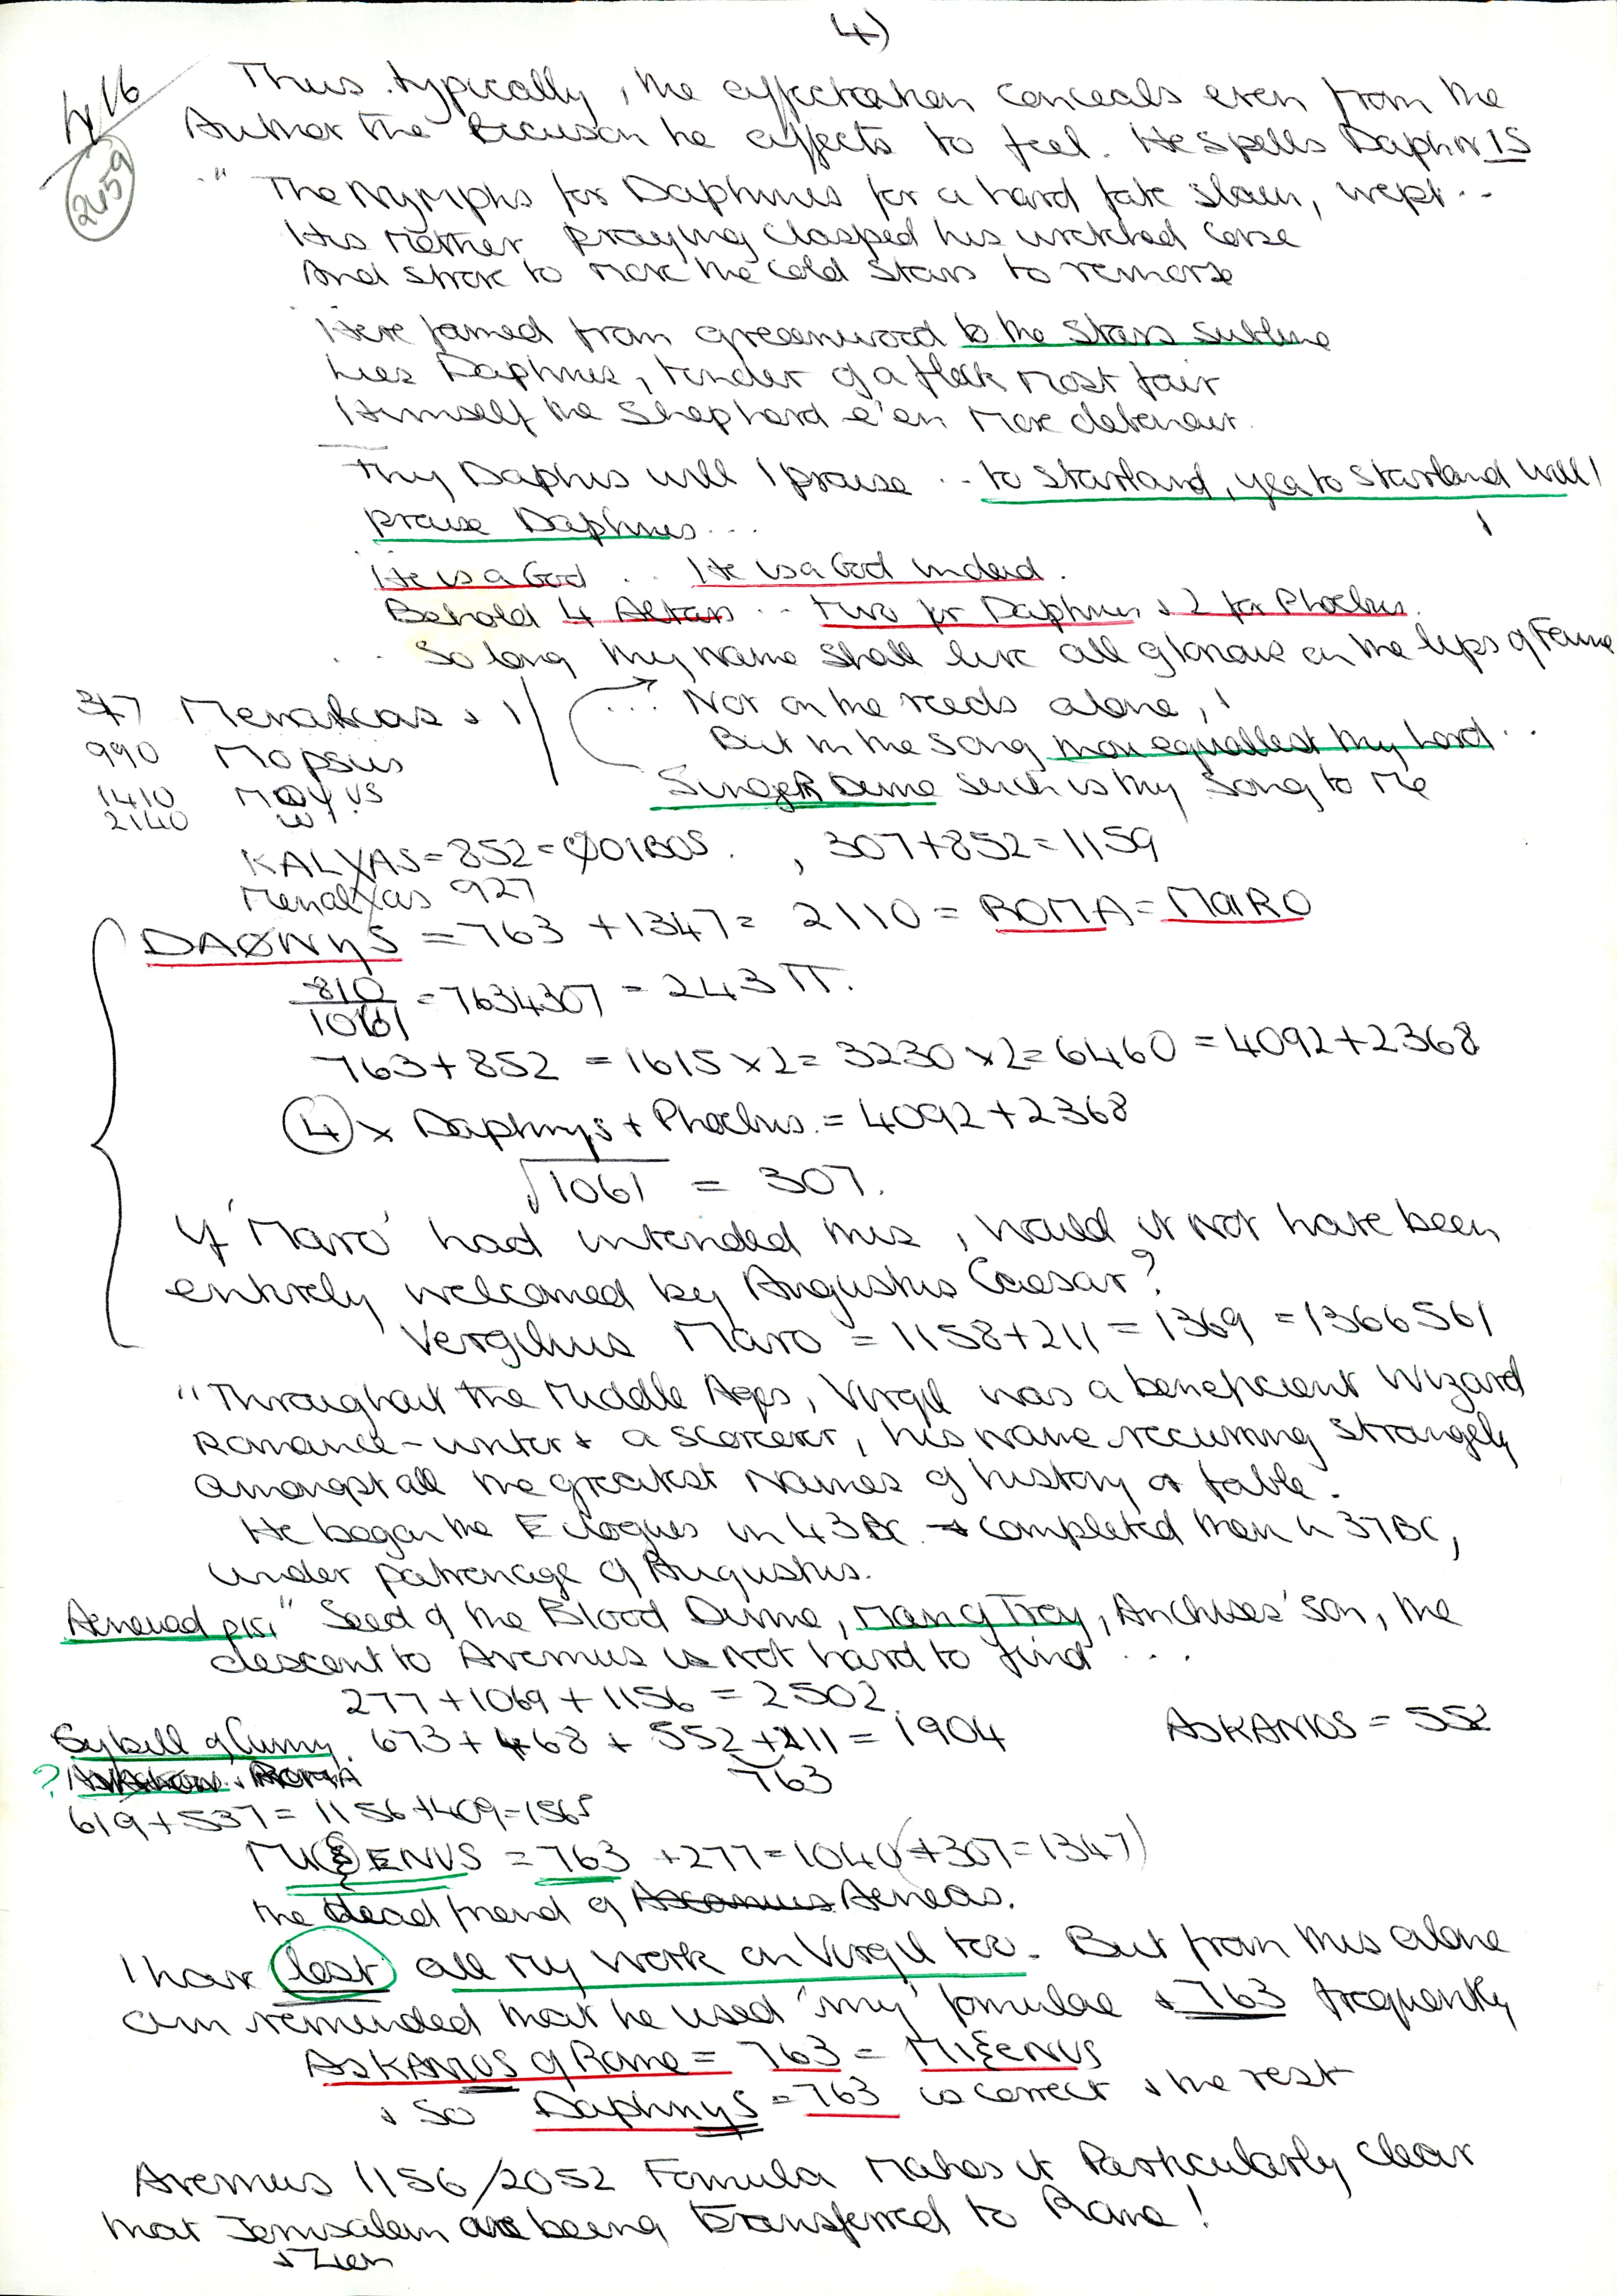 4)
h/16
2459
Thus typically, the affectation conceals even from the
Author the he affects to feel. He spells DaphnIS
.." The Nymphs for Daphnis for a hard fate slain, wept ..
His Mother praying clasped his wretched corse
And strove to move the cold stars to remorse
Here famed from greenwood to the stars sublime
Lies Daphnis, tender of a flock most fair
Himself the Shepherd e'en more debonair.
Thy Daphnis will I praise ... to Starland, yea to Starland will I
praise Daphnis ...
He is a God .. He is a God indeed.
Behold 4 Altars .. two for Daphnis & 2 for Phoebus.
.. So long thy name shall live all glorious on the lips of Fame
347 Menalkas & 1 ... Not on the reeds alone,
990 Mopsus But in the song thou equallest thy Lord ..
1410
2140
Singer Divine such is thy song to Me
KALXAS = 852 = φOIBOS. , 307+852 = 1159
MenalXas 927
DAØNyS = 763 + 1347 = 2110 = ROMA = MARO
810/1061 = 7634307 = 243 π.
763+852 = 1615 x2 = 3230 x2 = 6460 = 4092+2368
④ x Daphnys + Phoebus. = 4092+2368
√1061 = 307.
If 'Maro' had intended this, would it not have been
entirely welcomed by Augustus Caesar?
Vergilius Maro = 1158+211 = 1369 = 1366561
"Throughout the Middle Ages, Virgil was a beneficient Wizard
Romance-writer & a scorcerer, his name recurring strangely
amongst all the greatest Names of history or fable.
He began the Eclogues in 43BC. & completed them in 37BC,
under patronage of Augustus.
Aeneiad p151 " Seed of the Blood Divine, Man of Troy, Anchises' son, the
descent to Avernus is not hard to find ...
277+1069+1156 = 2502
Sybill of Cumy. 673+468+552+211 = 1904 ASKANIOS = 552
763
?
619+537 = 1156+409=1565
MI{ENUS = 763 +277=1040 (+307=1347)
the dead friend of Ascanius Aeneas.
I have lost all my work on Virgil too. But from this alone
am reminded that he used 'my' formulae & 763 frequently
ASKANIOS of Rome = 763 = MI{ENUS
& So Daphnys = 763 is correct & the rest
Avernus 1156/2052 Formula Makes it Particularly clear
that Jerusalem are being transferred to Rome!
& Zion